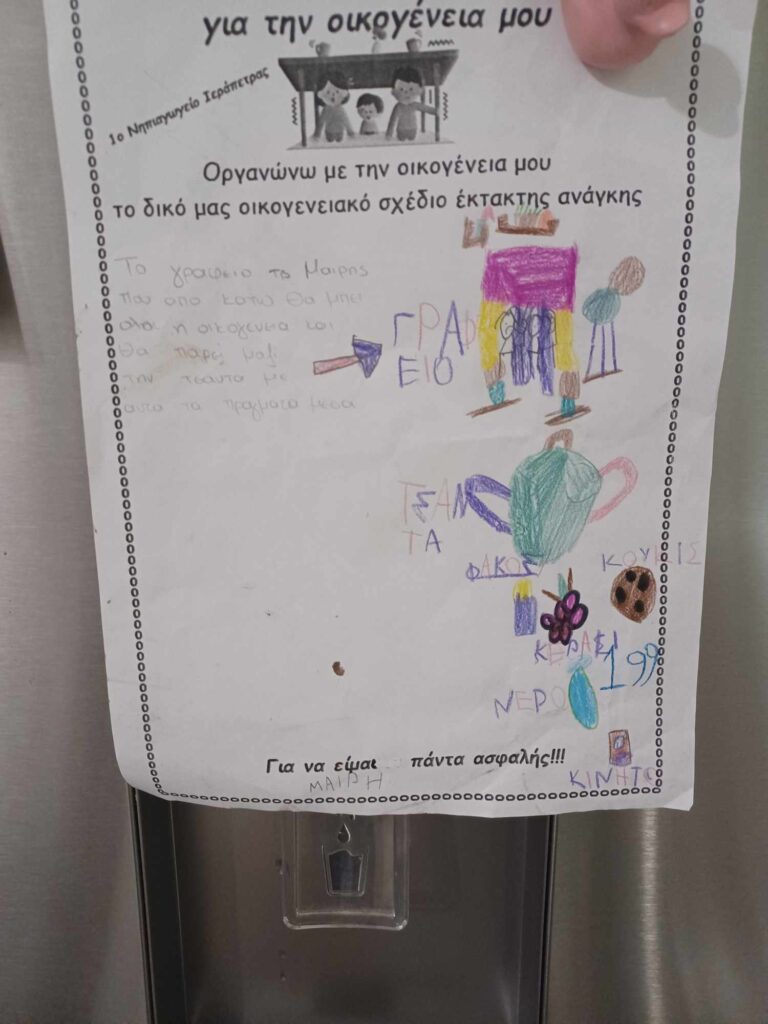 για την οικογένεια μου
1ο Νηπιαγωγείο Ιεράπετρας
Οργανώνω με την οικογένεια μου
το δικό μας οικογενειακό σχέδιο έκτακτης ανάγκης
Το γραφειο τς Μαιρης
που απο κατω θα μπει
ολοι η οικογενεια και
θα παρει μαζι
την τσαντα με
αυτα τα πραγματα μεσα
ΓΡΑΦ
ΕΙΟ
ΤΣΑΝ
ΤΑ
ΦΑΚΟΣ
ΚΟΥΚΙΣ
ΚΕΡΑΣΙ
199
ΝΕΡΟ
Για να είμαι πάντα ασφαλής!!!
ΜΑΙΡΗ
ΚΙΝΗΤΟ